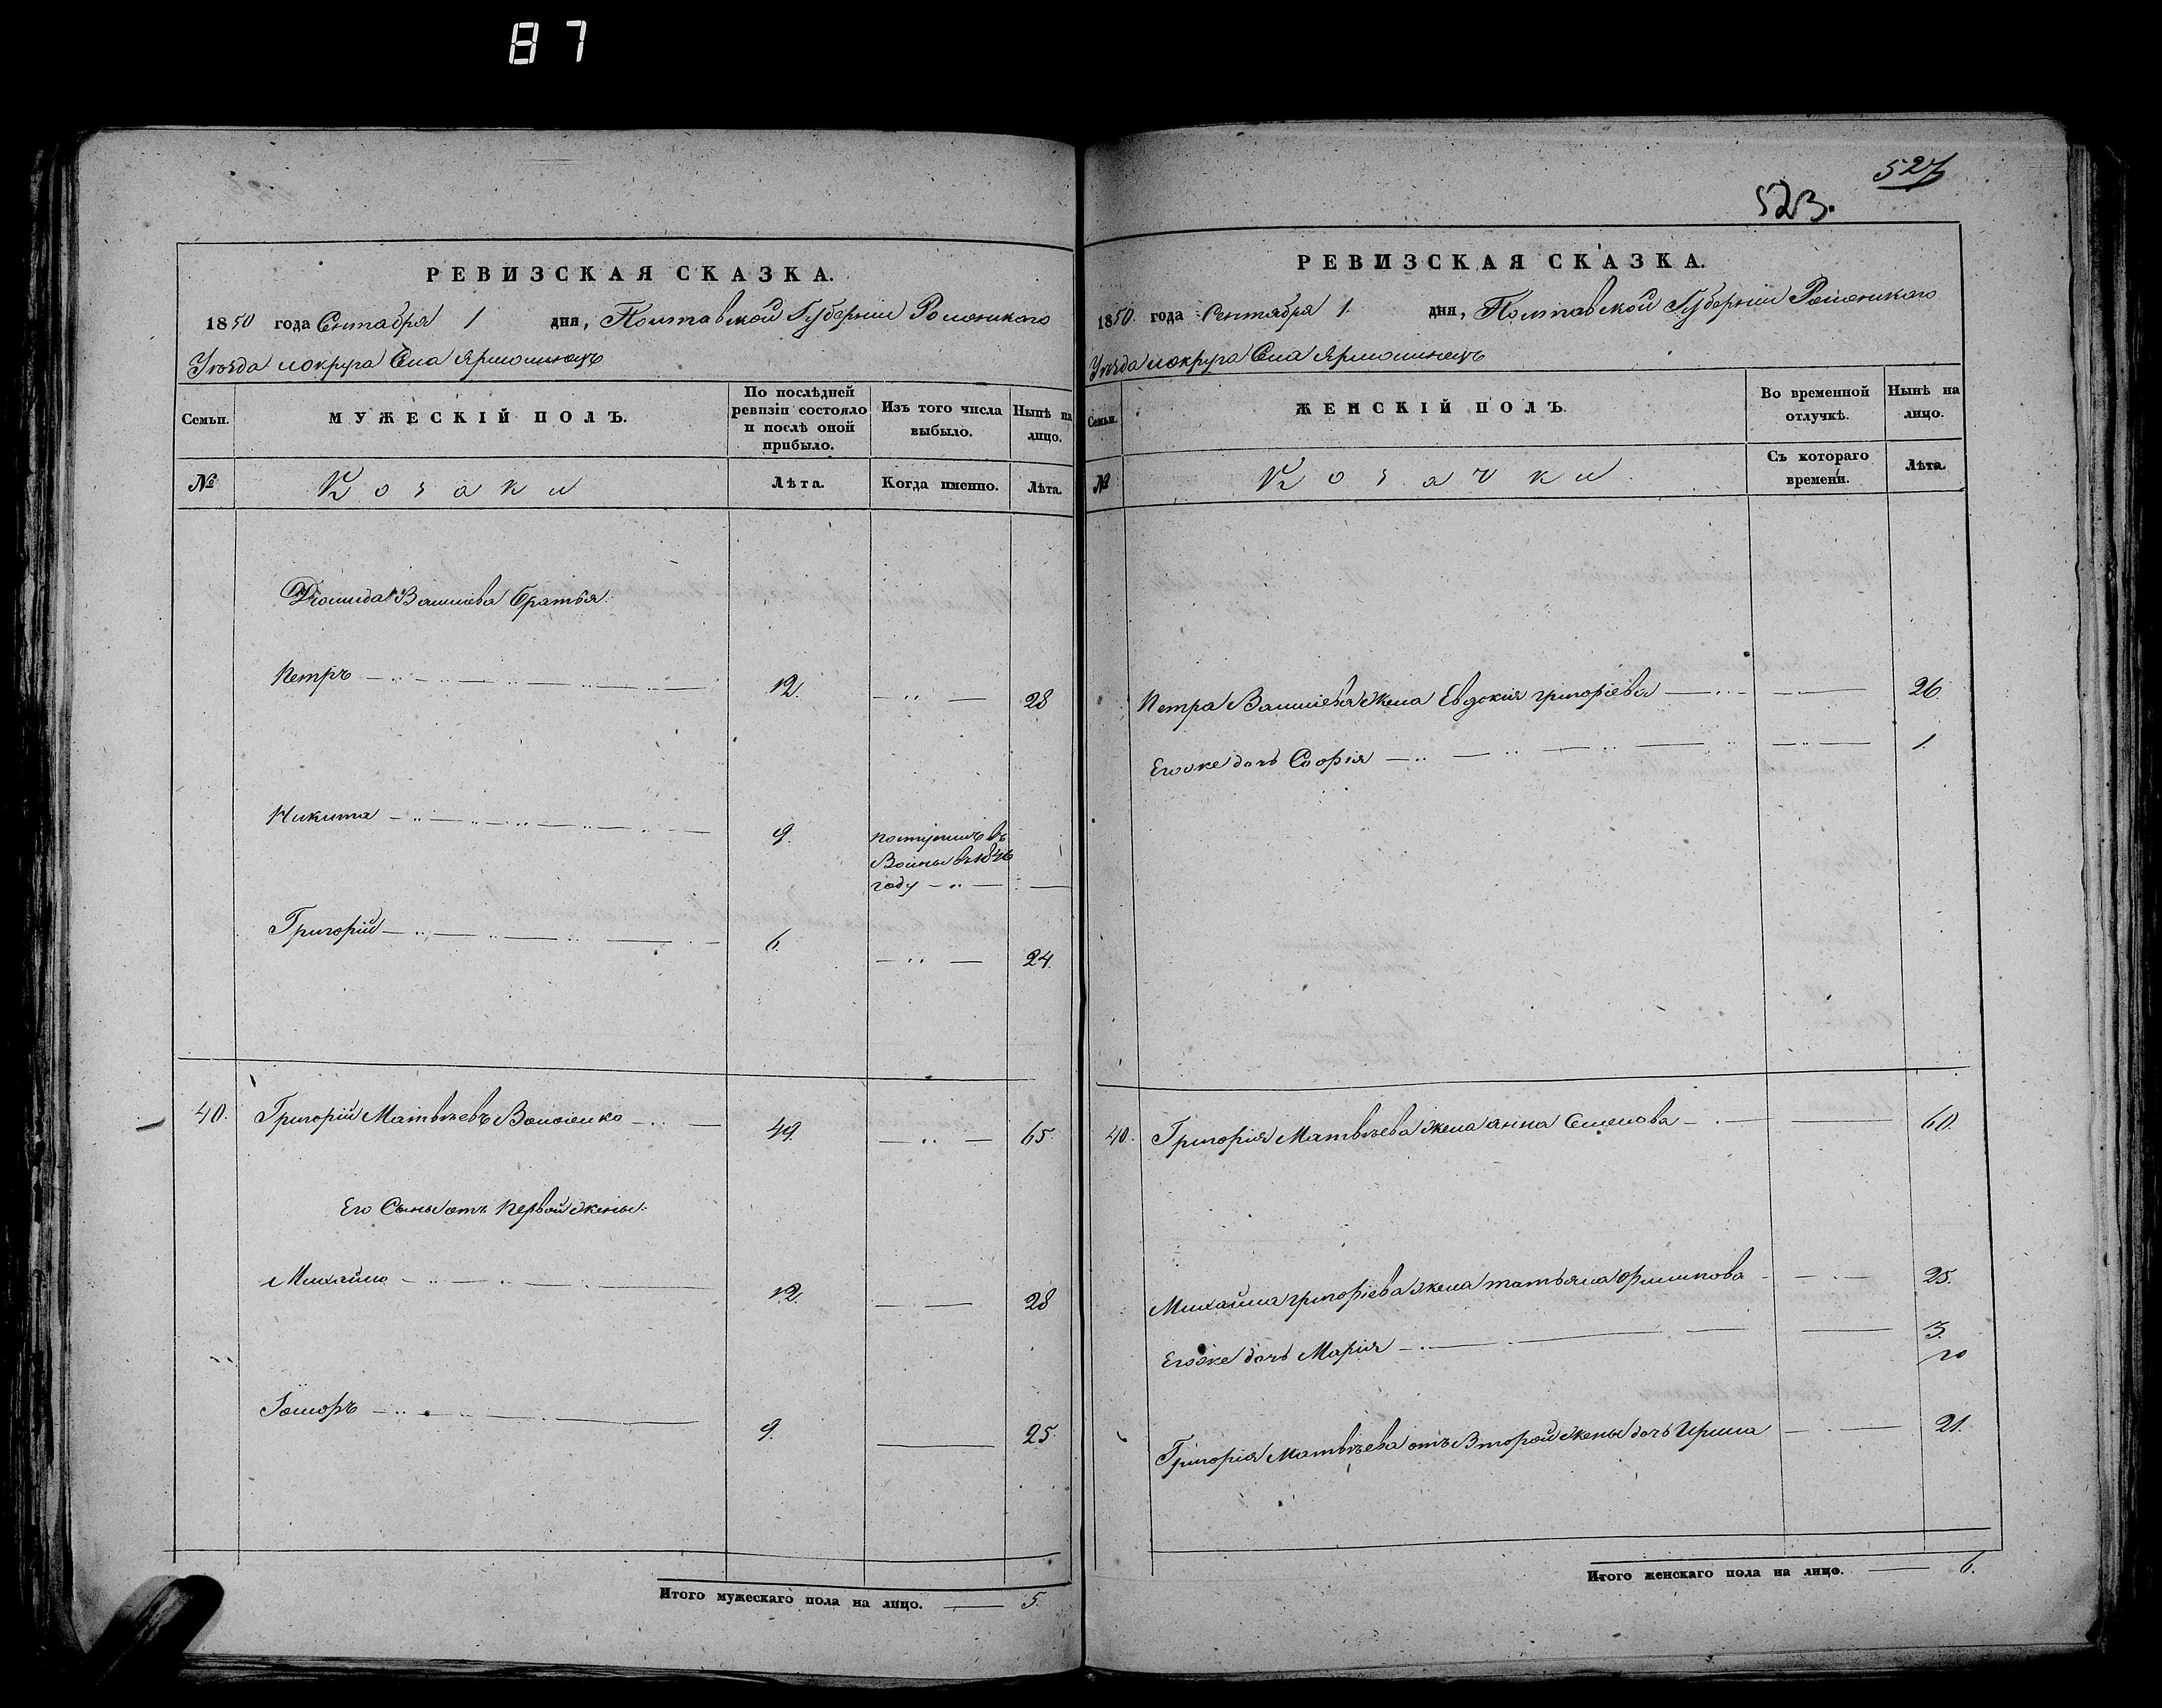 87
527
523.
РЕВИЗСКАЯ СКАЗКА.
1850 года Сентября 1 дня, Полтавской Губерніи Роменского
Уезда и округа Села Ярмолинецъ
Семьи. МУЖЕСКІЙ ПОЛЪ. По послѣдней ревизіи состояло и послѣ оной прибыло. Изъ того числа выбыло. Нынѣ на лицо.
№ Козаки Лѣта. Когда именно. Лѣта.
Васильева братья:
Петръ 12. 28
Никита 9. поступилъ въ
году
Григорій 6. 24.
40. Григорій Матвѣевъ 49. 65.
Его Сыны отъ первой жены:
Михайло 12. 28
9. 25.
Итого мужескаго пола на лицо. 5.
РЕВИЗСКАЯ СКАЗКА.
1850. года Сентября 1. дня, Полтавской Губерніи Роменского
Уезда и округа Села Ярмолинецъ
Семьи. ЖЕНСКІЙ ПОЛЪ. Во временной отлучкѣ. Нынѣ на лицо.
№ Козачки Съ котораго времени. Лѣта.
Петра Васильева жена Евдокия григоріева 26.
Его же дочь Софія 1.
40. Григорія Матвѣева жена анна Семенова 60.
Михайла григоріева жена татьяна филипова 25.
Его же дочь Марія 3.
Григорія Матвѣева отъ Второй жены дочь Ирина 21.
Итого женскаго пола на лицо. 6.